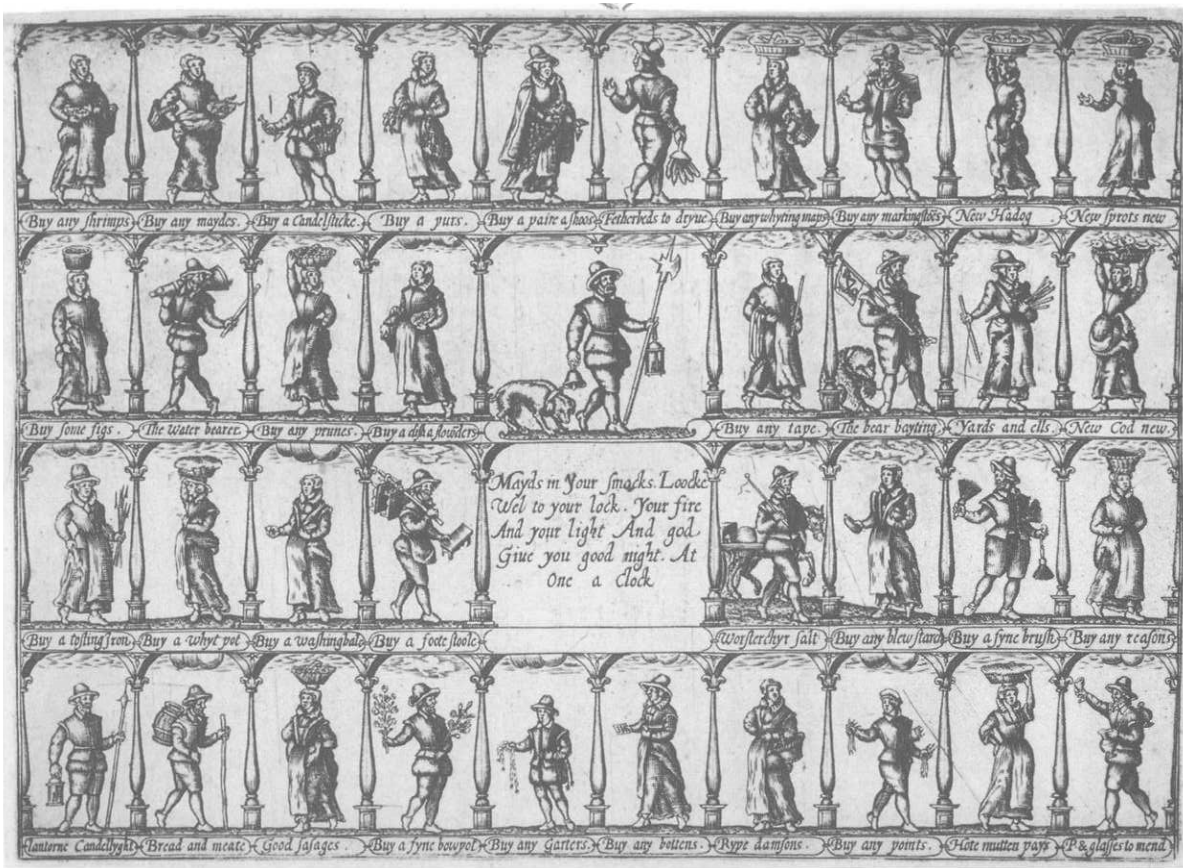 Buy any shrimps
Buy any maydes.
Buy a Candelsticke.
Buy a purs.
Buy a paire a shoos
Fetherbeds to dryue
Buy any whyting maps
Buy any markingstoes
New Hadog
New sprots new
Buy some figs.
The Water bearer.
Buy any prunes.
Buy a dish a flounders
Buy any tape.
The bear bayting.
Yards and ells.
New Cod new.
Mayds in Your smocks. Loocke
Wel to your lock. Your fire
And your light And god.
Giue you good night. At
One a Clock
Buy a tosting Iron
Buy a whyt pot
Buy a washing bale
Buy a foote stoole
Worsterchyr salt
Buy any blew starch
Buy a fyne brush
Buy any reasons
lanterne Candellyght
Bread and meate
Good sasages.
Buy a fyne bowpot
Buy any Garters.
Buy any bottens.
Rype damsons.
Buy any points.
Hote mutten pays
P& glasses to mend